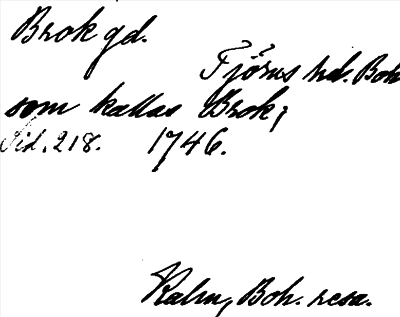 Brok gd.
Tjörns hd. Boh
som kallas Brok;
Sid. 218. 1746.
Kalm, Boh. resa.